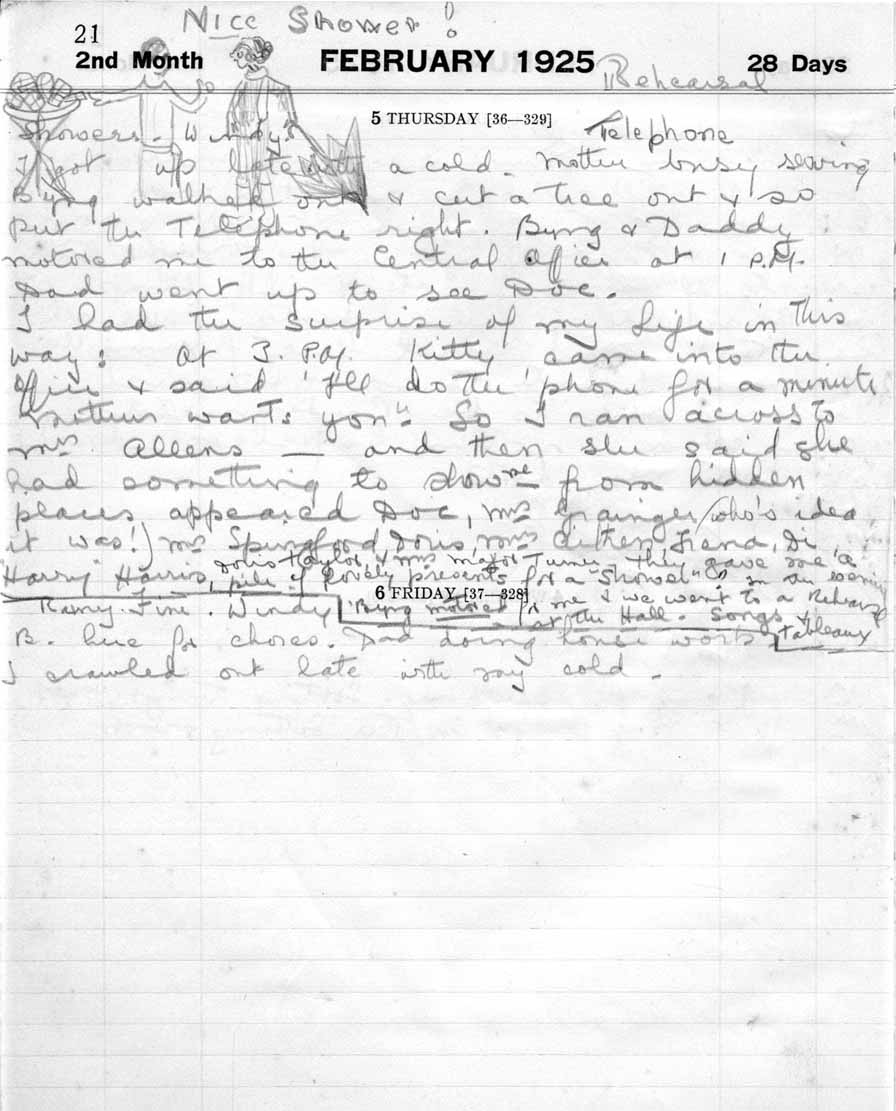 Nice Shower!
21
2nd Month FEBRUARY 1925 28 Days
Rehearsal
5 THURSDAY [36—329]
Showers. Windy. Telephone
I got up late with a cold. Mother busy sewing
Byng walked out & cut a tree out & so
put the Telephone right. Byng & Daddy
motored me to the Central Office at 1 P.M.
Dad went up to see Doc.
I had the surprise of my life in this
way: at 3. P.M. Kitty came into the
office & said "I'll do the 'phone for a minute
Mother wants you" So I ran across to
Mrs Allens — and then she said she
had something to show me — from hidden
places appeared Doc, Mrs Grainger (who's idea
it was!) Mrs Springford, Doris, Mrs Aitken, Fiena, Di,
"Harry" Harris, Doris Taylor & Mrs Major Turner. They gave me a
pile of lovely presents for a "Shower" & in the evening
6 FRIDAY [37—328]
Byng motored for me & we went to a Rehearsal
at the Hall. Songs &
Tableaux
Rainy. Fine. Windy
B. here for chores. Dad doing house work
I crawled out late with my cold.